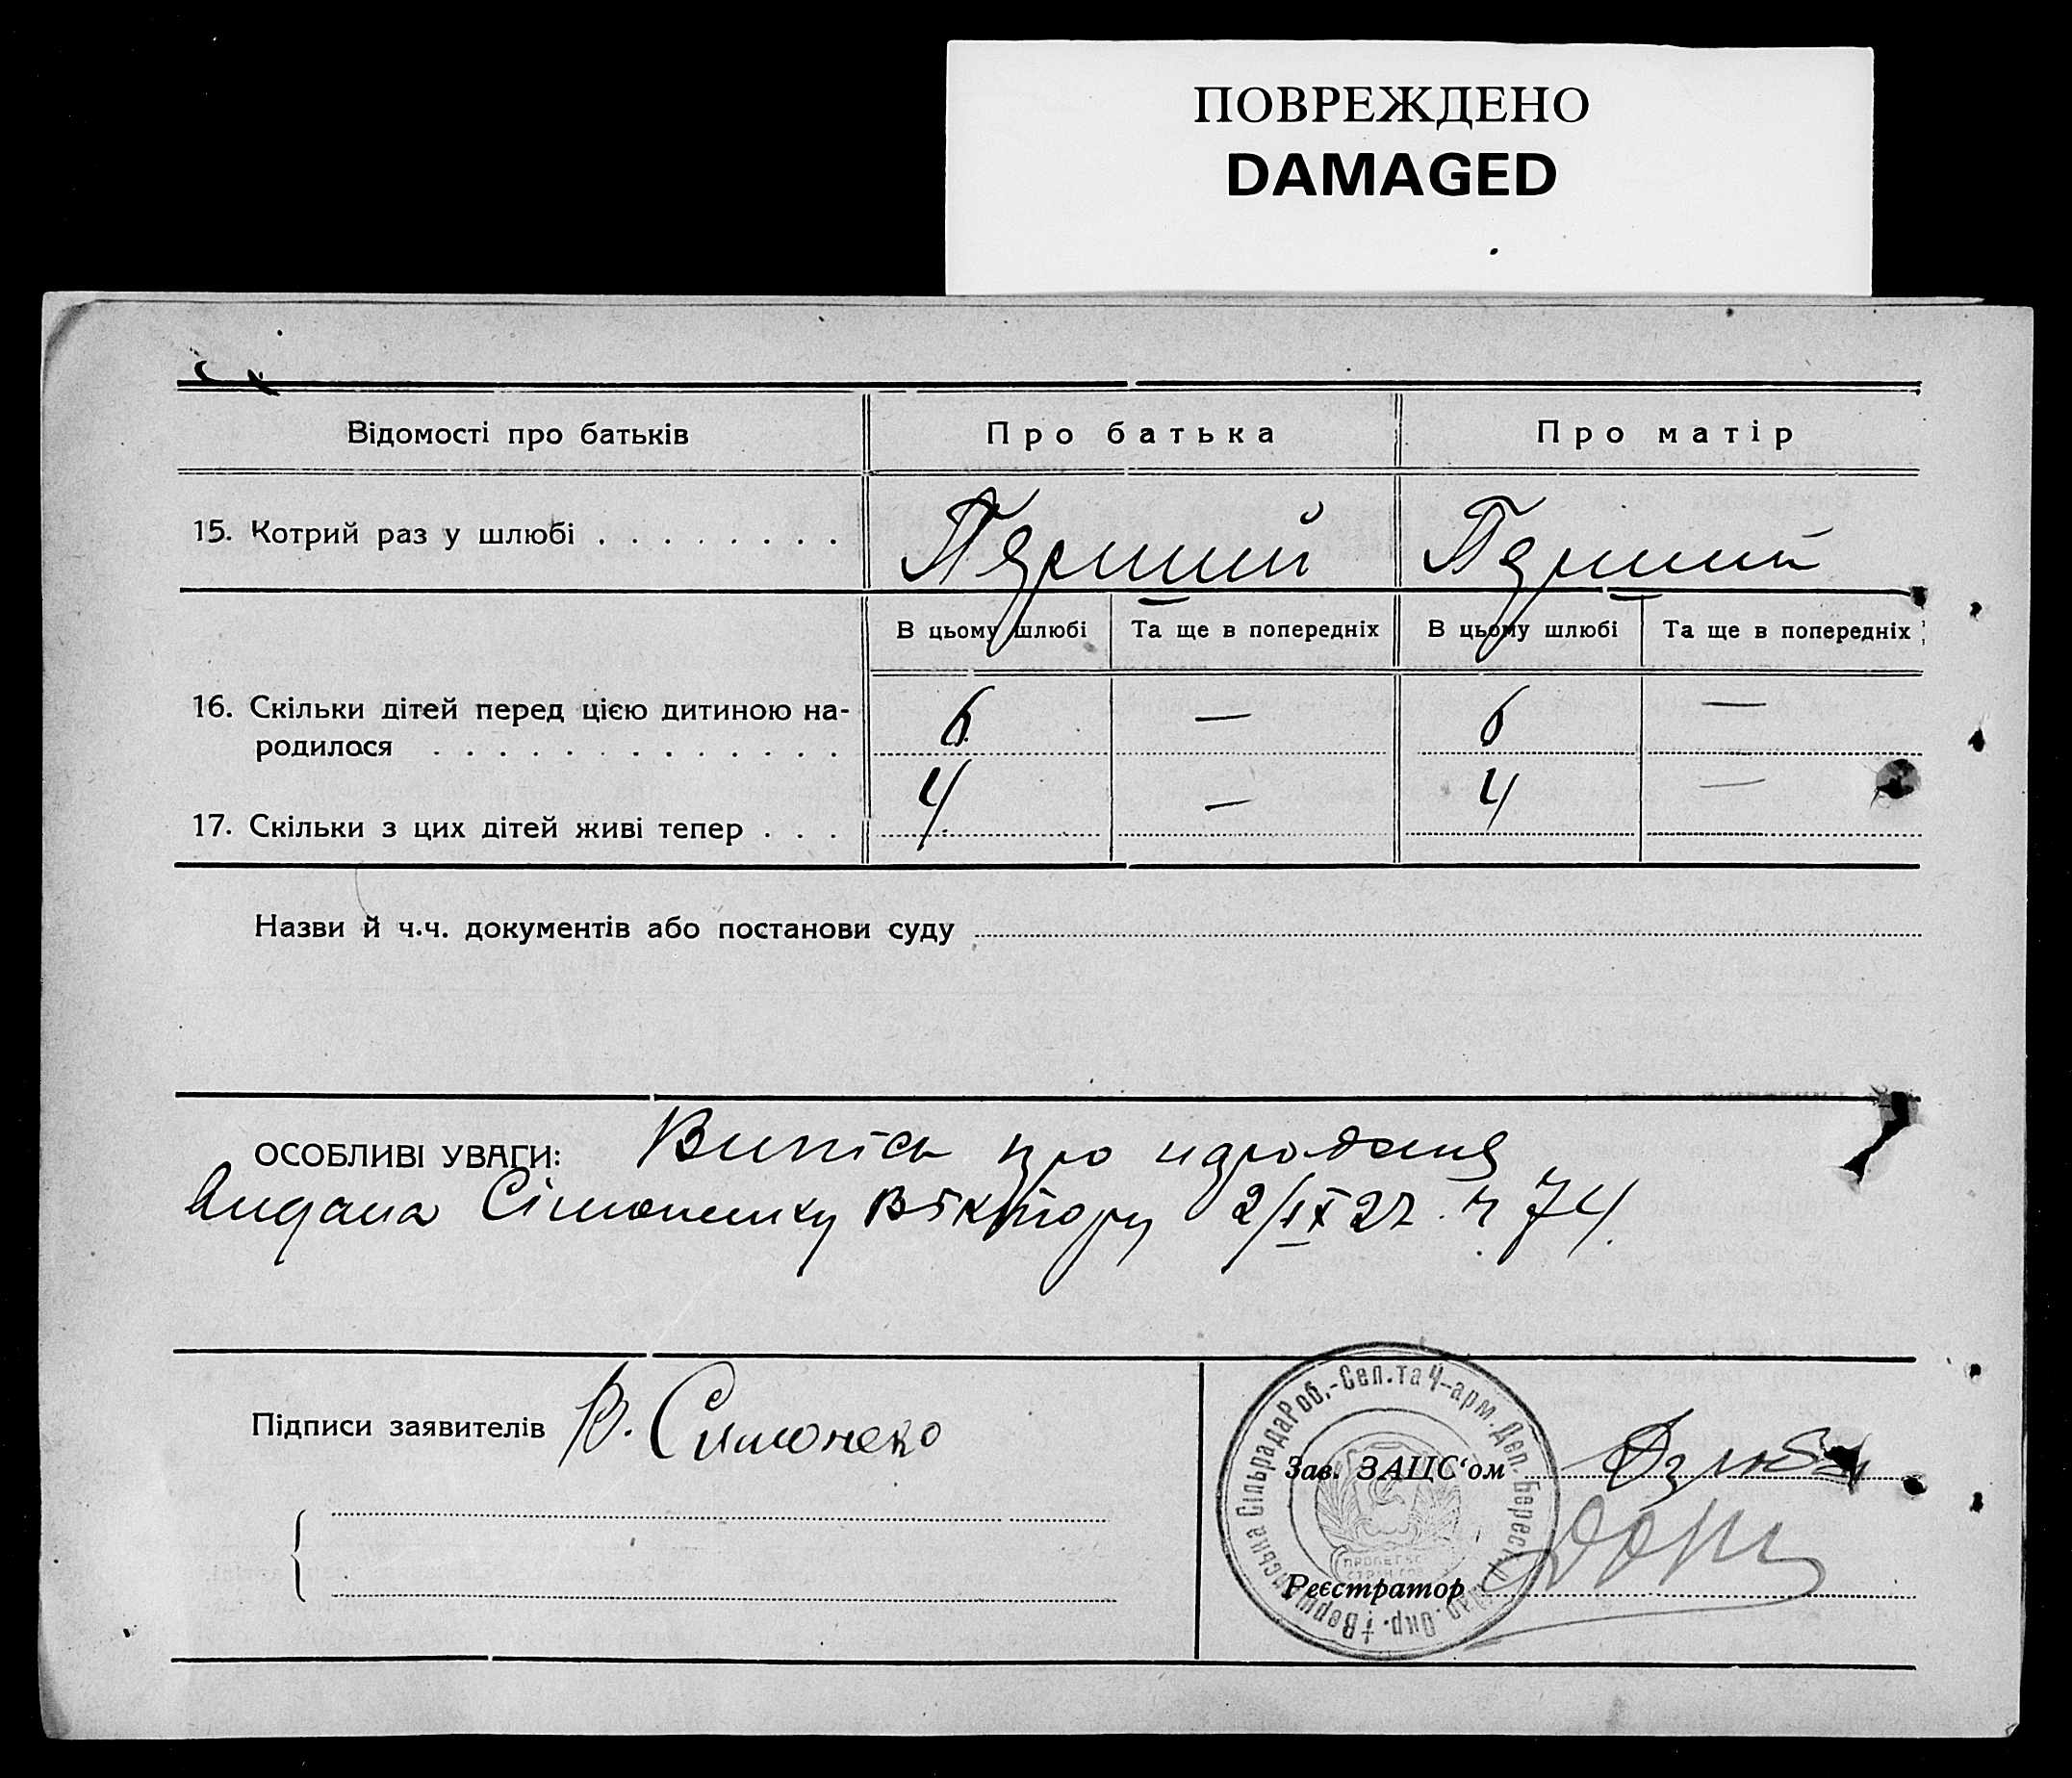 ПОВРЕЖДЕНО
DAMAGED
Відомості про батьків
Про батька
Про матір
15. Котрий раз у шлюбі . . . . . . . .
Перший
Перший
В цьому шлюбі
Та ще в попередніх
В цьому шлюбі
Та ще в попередніх
16. Скільки дітей перед цією дитиною на-
родилося . . . . . . . . . . . . .
6
—
6
—
17. Скільки з цих дітей живі тепер . . .
4
—
4
—
Назви й ч.ч. документів або постанови суду
ОСОБЛИВІ УВАГИ: Випісь про
видана Сімоненку Віктору 2/IX 27 ч 74
Підписи заявителів В. Симонеко
Зав. ЗАЦС'ом
Реєстратор
Сільрада Роб.-Сел. та Ч-арм. Деп. Берес
Окр.